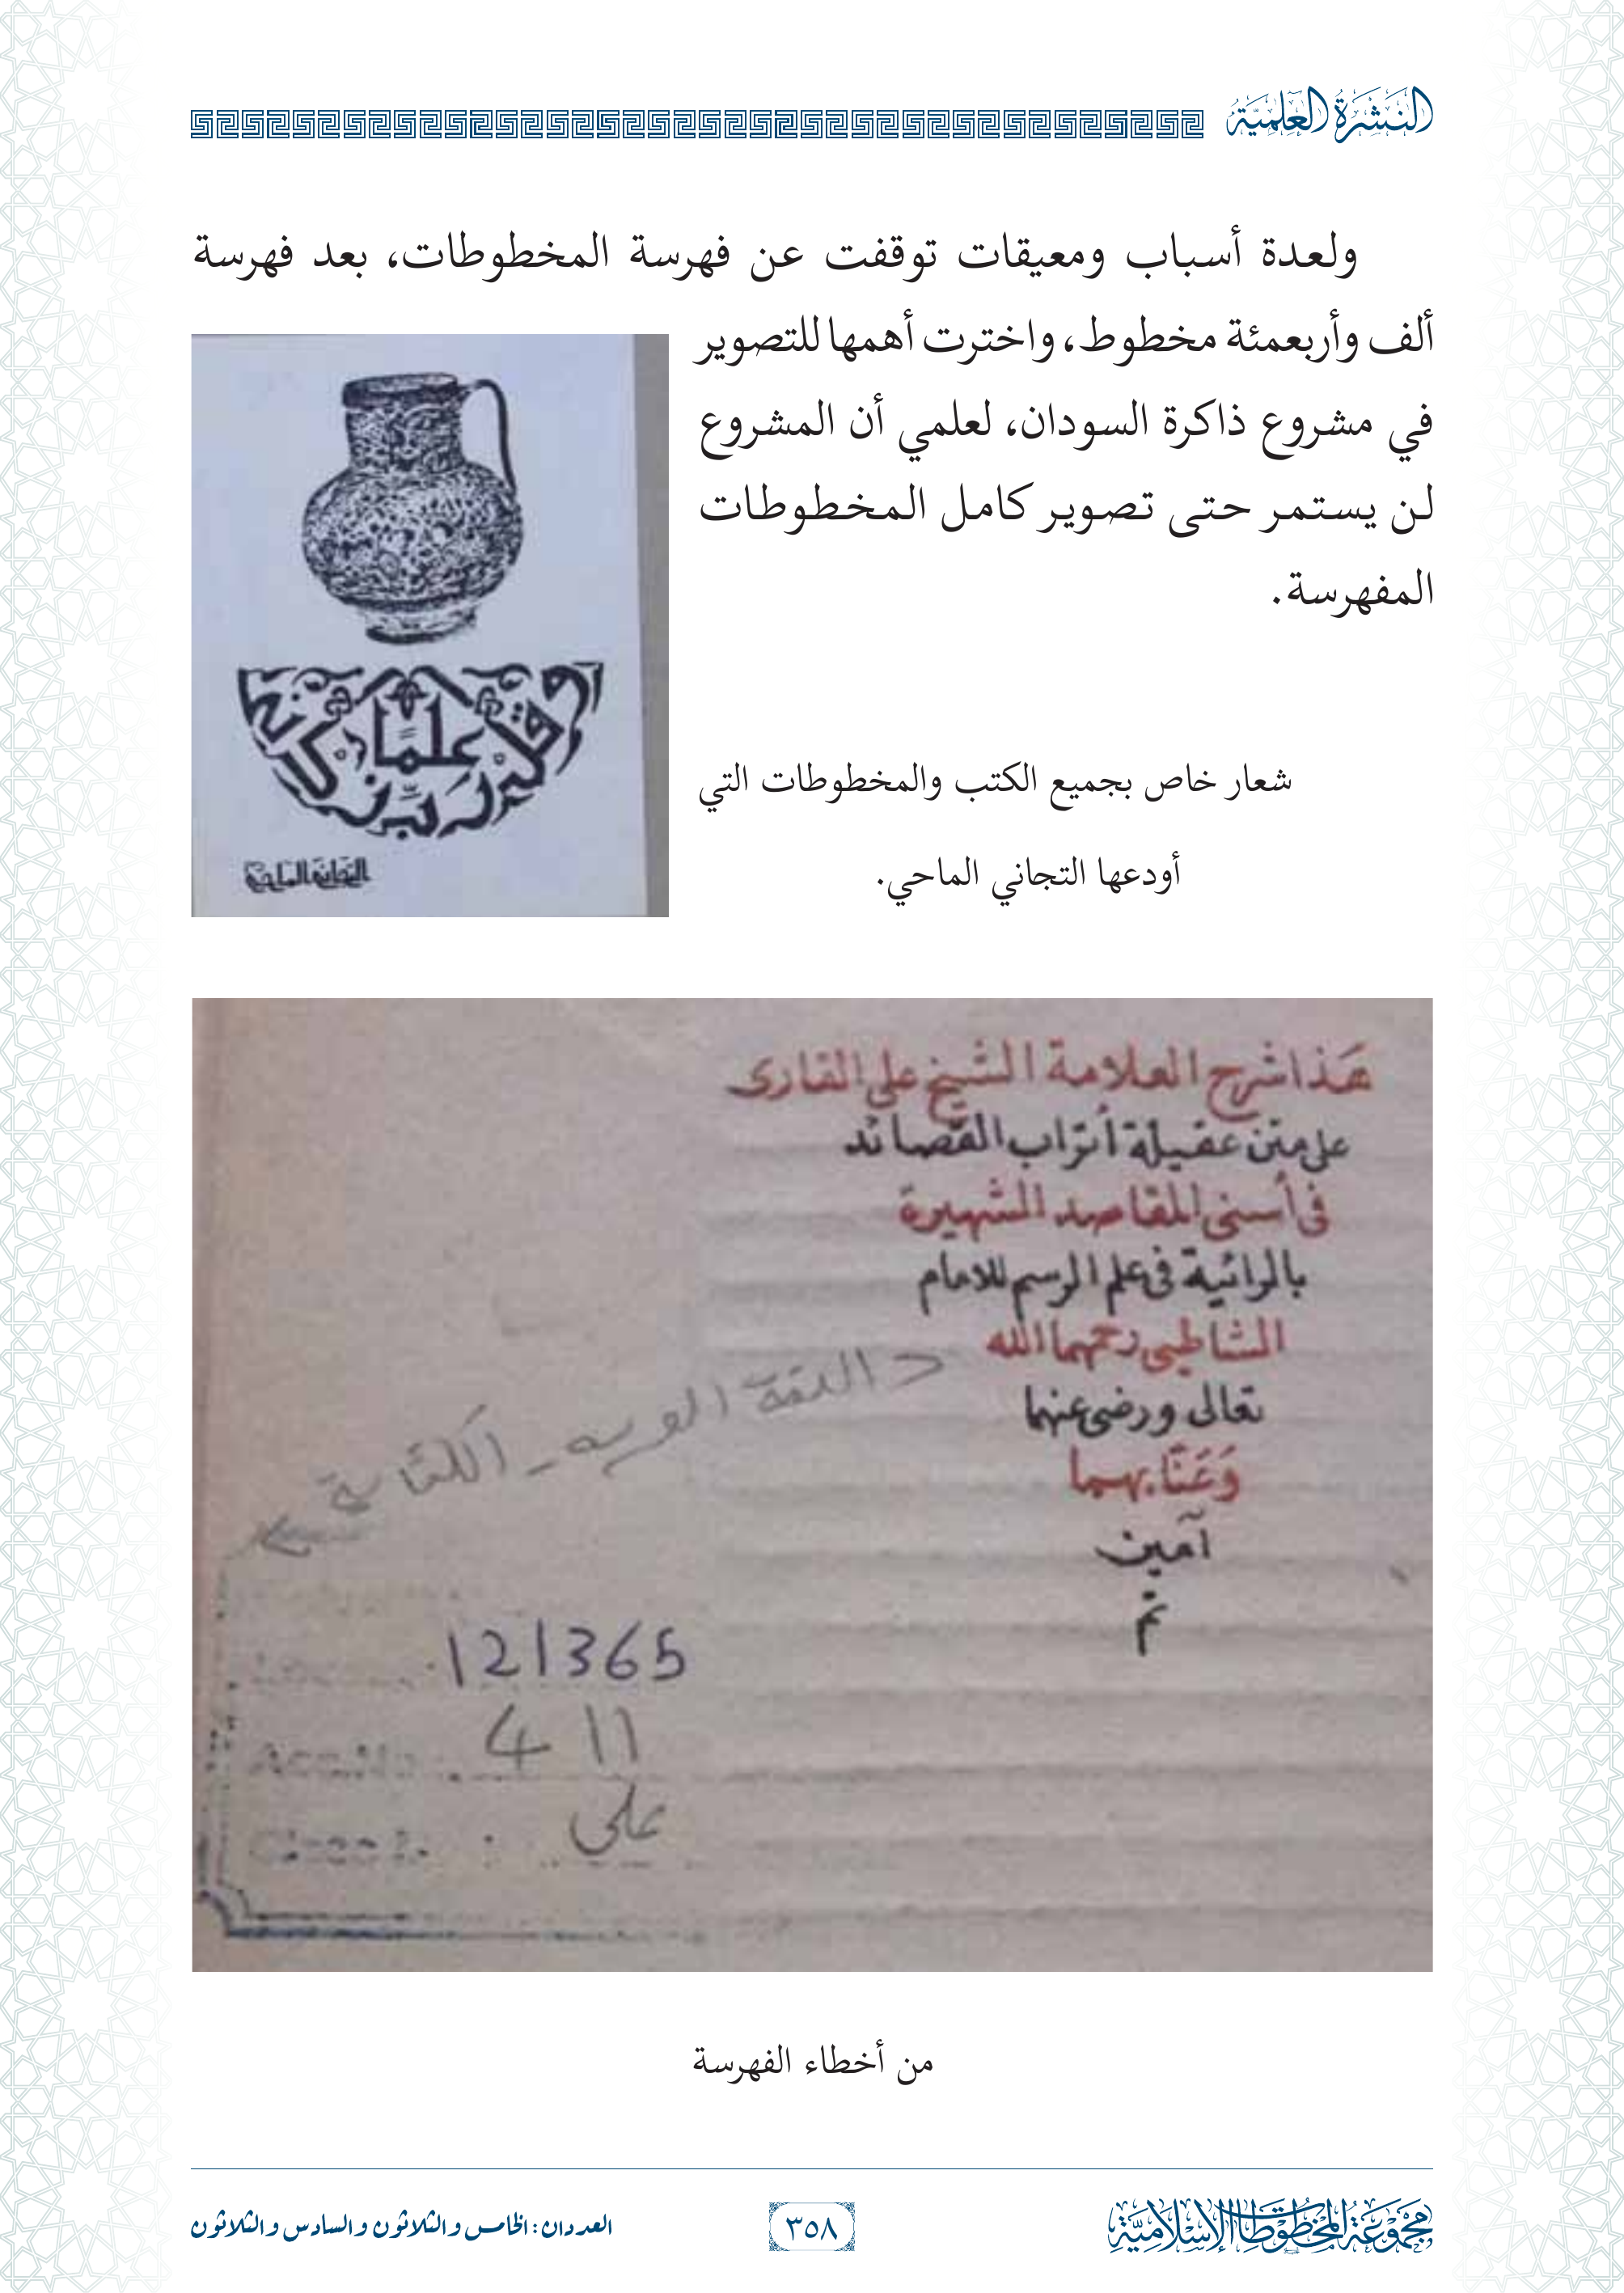 النشرة العلمية
ولعدة أسباب ومعيقات توقفت عن فهرسة المخطوطات، بعد فهرسة
ألف وأربعمئة مخطوط، واخترت أهمها للتصوير
في مشروع ذاكرة السودان، لعلمي أن المشروع
لن يستمر حتى تصوير كامل المخطوطات
المفهرسة.
وقل رب زدني علمًا
التجاني الماحي
شعار خاص بجميع الكتب والمخطوطات التي
أودعها التجاني الماحي.
هذا شرح العلامة الشيخ على القارى
على متن عقيلة أتراب القصائد
فى أسنى المقاصد الشهيرة
بالرائية فى علم الرسم للامام
الشاطبى رحمهما الله
تعالى ورضى عنهما
وَعَنَّا بهما
آمين
تم
اللغة العربية - الكتابة
121365
411
على
من أخطاء الفهرسة
مجموعة المخطوطات الإسلامية
٣٥٨
العددان: الخامس والثلاثون والسادس والثلاثون